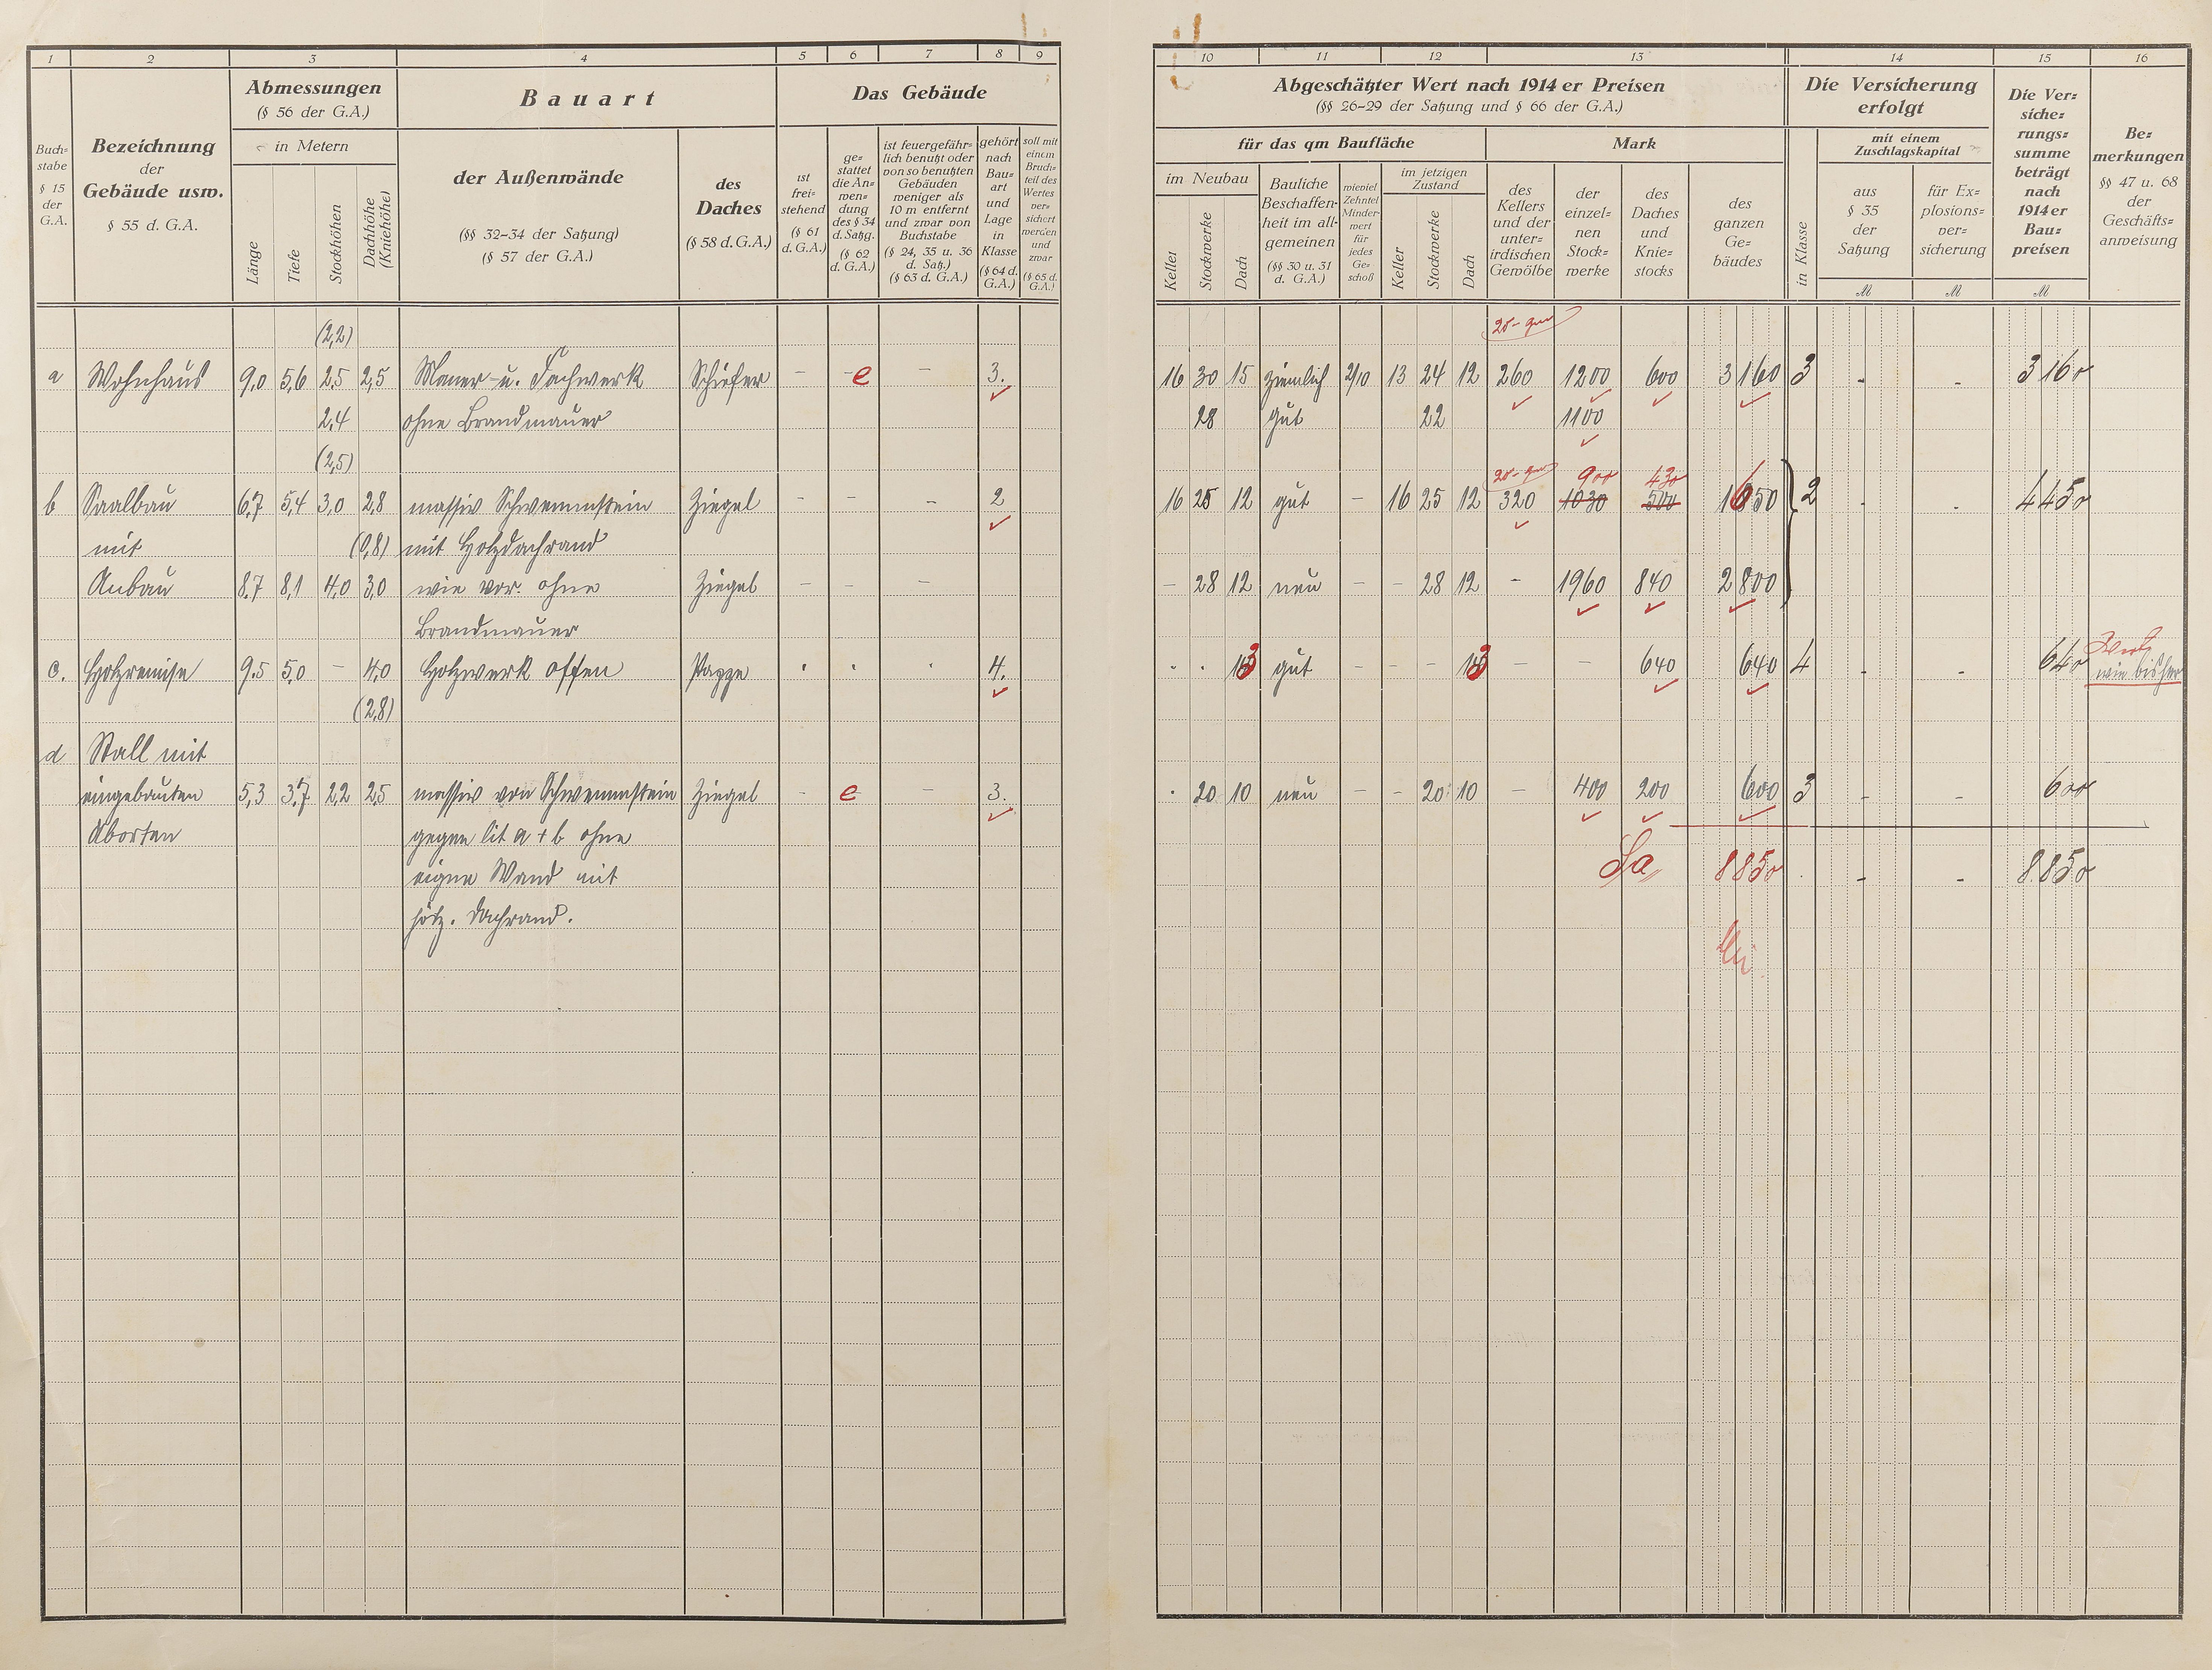 1 2 3 4 5 6 7 8 9
Buch=
stabe
§ 15
der
G.A.
Bezeichnung
der
Gebäude usw.
§ 55 d. G.A.
Abmessungen
(§ 56 der G.A.)
in Metern
Länge
Tiefe
Stockhöhen
Dachhöhe
(Kniehöhe)
Bauart
der Außenwände
(§§ 32–34 der Satzung)
(§ 57 der G.A.)
des
Daches
(§ 58 d. G.A.)
Das Gebäude
ist
frei=
stehend
(§ 61
d. G.A.)
ge=
stattet
die An=
wen=
dung
des § 34
d. Satzg.
(§ 62
d. G.A.)
ist feuergefähr=
lich benutzt oder
von so benutzten
Gebäuden
weniger als
10 m entfernt
und zwar von
Buchstabe
(§ 24, 35 u. 36
d. Satz.)
(§ 63 d. G.A.)
gehört
nach
Bau=
art
und
Lage
in
Klasse
(§ 64 d.
G.A.)
soll mit
einem
Bruch=
teil des
Wertes
ver=
sichert
werden
und
zwar
(§ 65 d.
G.A.)
(2,2)
a Wohnhaus 9,0 5,6 2,5 2,5 Mauer- u. Fachwerk Schiefer – – e – 3.
2,4 ohne Brandmauer
(2,5)
b Saalbau 6,7 5,4 3,0 2,8 massiv Schwemmstein Ziegel – – – 2
mit (0,8) mit Holzdachrand
Anbau 8,7 8,1 4,0 3,0 wie vor. ohne Ziegel – – –
Brandmauer
c. Holzremise 9.5 5,0 – 4,0 Holzwerk offen Pappe · · · 4.
(2,8)
d Stall mit
eingebauten 5,3 3,7 2,2 2,5 massiv von Schwemmstein Ziegel – e – 3.
Aborten gegen lit a + b ohne
eigne Wand mit
hölz. Dachrand.
10 11 12 13 14 15 16
Abgeschätzter Wert nach 1914 er Preisen
(§§ 26–29 der Satzung und § 66 der G.A.)
für das qm Baufläche
Mark
im Neubau
Keller
Stockwerke
Dach
Bauliche
Beschaffen=
heit im all=
gemeinen
(§§ 30 u. 31
d. G.A.)
wieviel
Zehntel
Minder=
wert
für
jedes
Ge=
schoß
im jetzigen
Zustand
Keller
Stockwerke
Dach
des
Kellers
und der
unter=
irdischen
Gewölbe
der
einzel=
nen
Stock=
werke
des
Daches
und
Knie=
stocks
des
ganzen
Ge=
bäudes
Die Versicherung
erfolgt
in Klasse
mit einem
Zuschlagskapital
aus
§ 35
der
Satzung
für Ex=
plosions=
ver=
sicherung
ℳ ℳ
Die Ver=
siche=
rungs=
summe
beträgt
nach
1914 er
Bau=
preisen
ℳ
Be=
merkungen
§§ 47 u. 68
der
Geschäfts=
anweisung
20- qm
16 30 15 ziemlich 2/10 13 24 12 260 1200 600 3160 3 - - 3160
28 gut 22 1100
20- qm 900 430
16 25 12 gut – 16 25 12 320 1030 500 1650 2 - - 4450
– 28 12 neu – – 28 12 – 1960 840 2800
· · 13 gut – – – 13 – – 640 640 4 - - 640 Wert
wie bisher
· 20 10 neu – – 20 10 – 400 200 600 3 - - 600
Sa 8850 - - 8.850